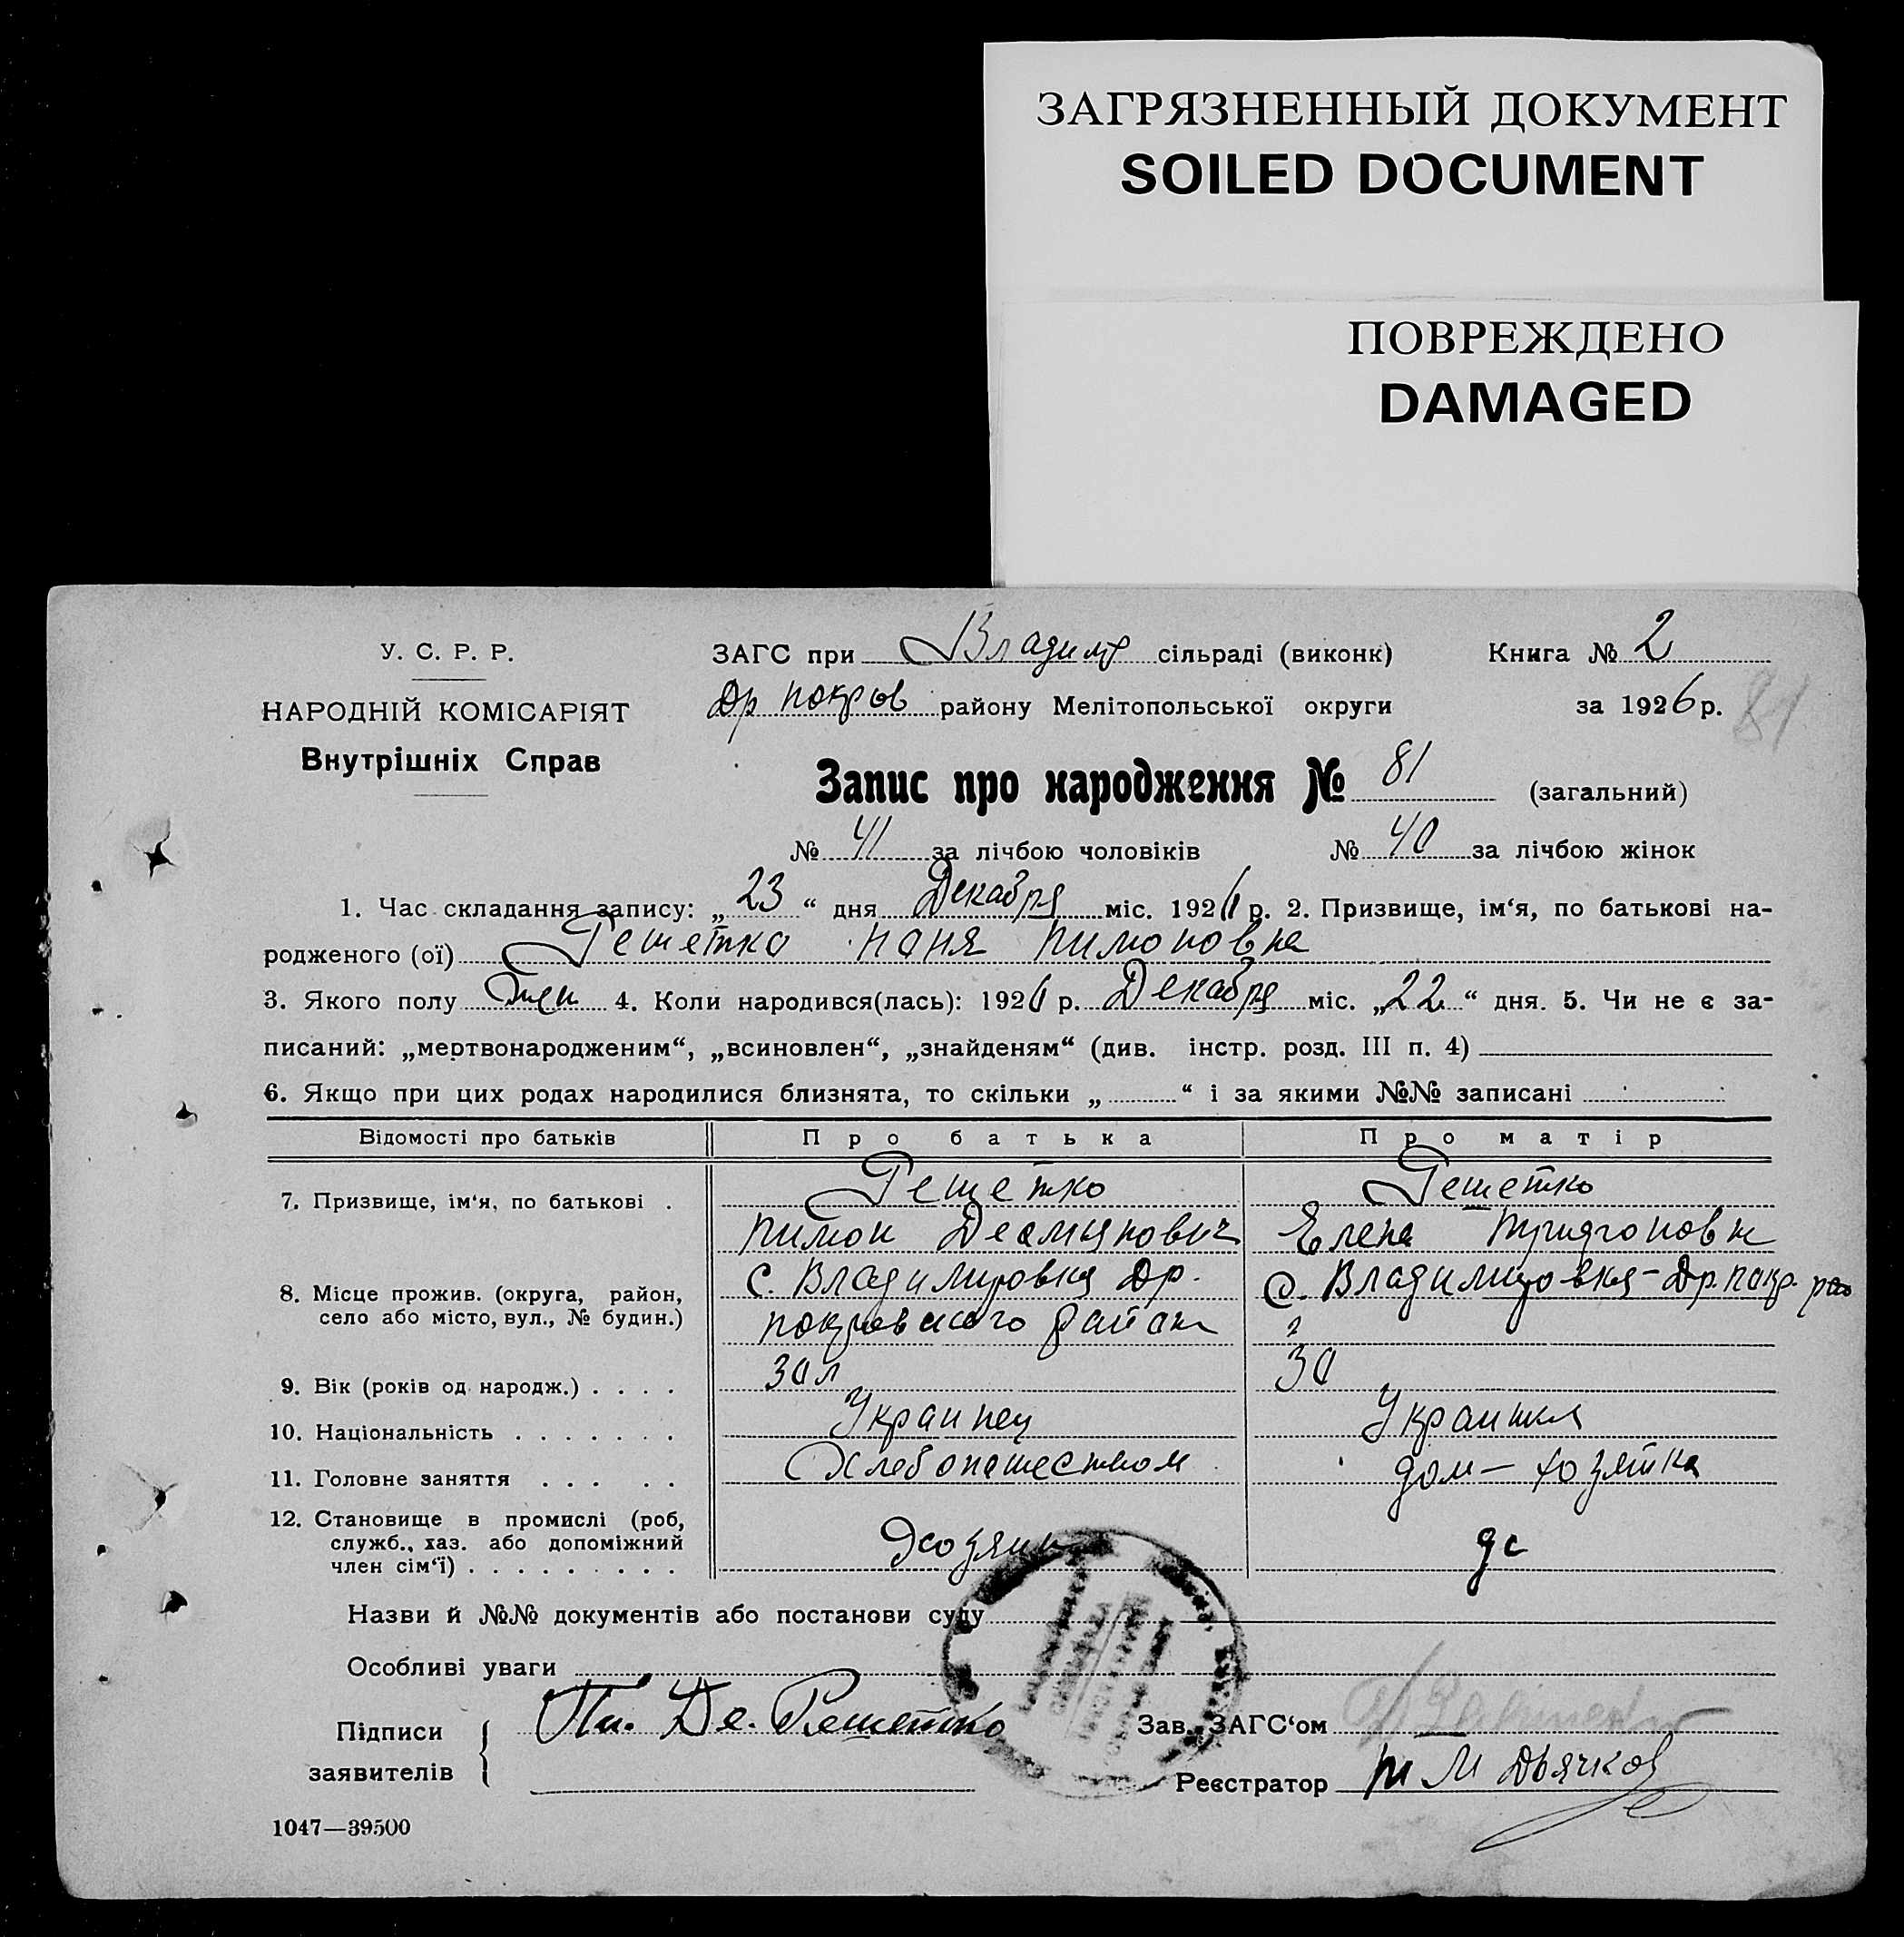 ЗАГРЯЗНЕННЫЙ ДОКУМЕНТ
SOILED DOCUMENT
ПОВРЕЖДЕНО
DAMAGED
У. С. Р. Р.
НАРОДНІЙ КОМІСАРІЯТ
Внутрішніх Справ
ЗАГС при Владимр сільраді (виконк) Книга № 2
Др покров району Мелітопольської округи за 1926 р. 81
Запис про народження № 81 (загальний)
№ 41 за лічбою чоловіків № 40 за лічбою жінок
1. Час складання запису: „23“ дня Декабря міс. 1926 р. 2. Призвище, ім‘я, по батькові на-
родженого (ої) Решетко Паня Пимоновна
3. Якого полу жен 4. Коли народився(лась): 1926 р. Декабря міс. „22“ дня. 5. Чи не є за-
писаний: „мертвонародженим“, „всиновлен“, „знайденям“ (див. інстр. розд. III п. 4)
6. Якщо при цих родах народилися близнята, то скільки „ “ і за якими №№ записані
Відомості про батьків Про батька Про матір
7. Призвище, ім‘я, по батькові . Решетко Решетко
Пимон Демянович Елена
8. Місце прожив. (округа, район, село або місто, вул., № будин.) с. Владимировка Др. с. Владимировка - Др. покр. рао
покровского района
9. Вік (років од народж.) . . . . 30 л 30
10. Національність . . . . . . . Украинец Украинка
11. Головне заняття . . . . . Хлебопашеством дом - хозяйка
12. Становище в промислі (роб, служб., хаз. або допоміжний член сім‘ї) . . . . . . . . . Хозяин дс
Назви й №№ документів або постанови суду
Особливі уваги
Підписи заявителів Пи. Де. Решетко
Зав. ЗАГС‘ом
Реєстратор М Дьячков
1047—39500